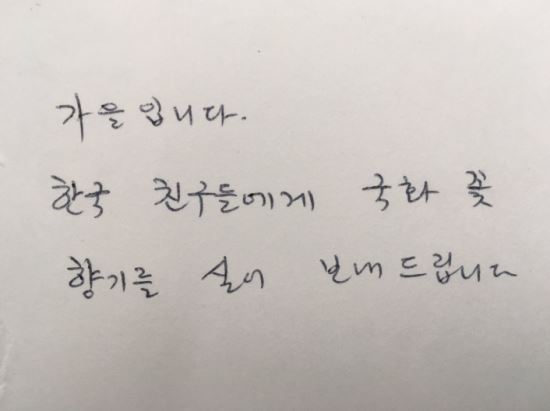 가을입니다.
한국 친구들에게 국화 꽃
향기를 실어 보내드립니다